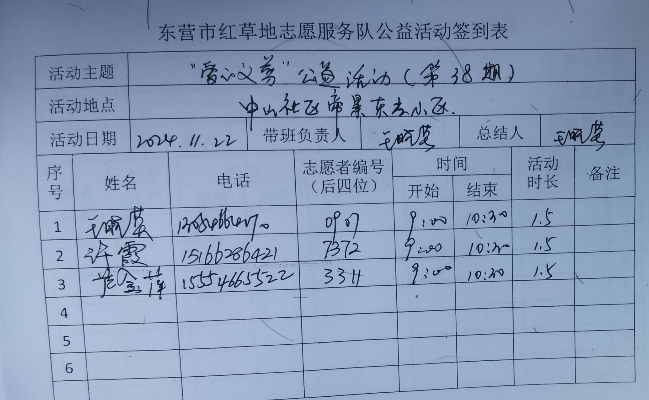 东营市红草地志愿服务队公益活动签到表
活动主题 "爱心义剪"公益活动(第38期)
活动地点 中山社区帝景东方小区.
活动日期 2024.11.22 带班负责人 王晓荣 总结人 王晓荣
序号 姓名 电话 志愿者编号(后四位) 时间 开始 结束 活动时长 备注
1 王晓荣 0907 9:00 10:30 1.5
2 许霞 15166286421 7372 9:00 10:30 1.5
3 金萍 15554665522 3311 9:00 10:30 1.5
4
5
6